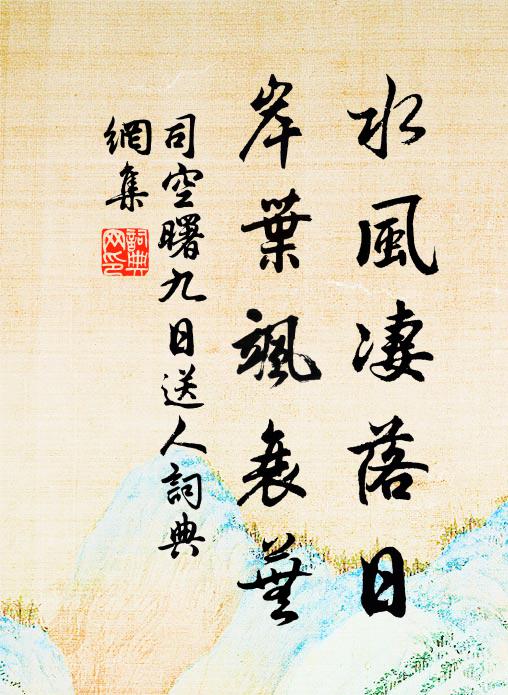 水風淒落日
岸葉颯衰蕪
司空曙九日送人詞典
網集
詞典
网印